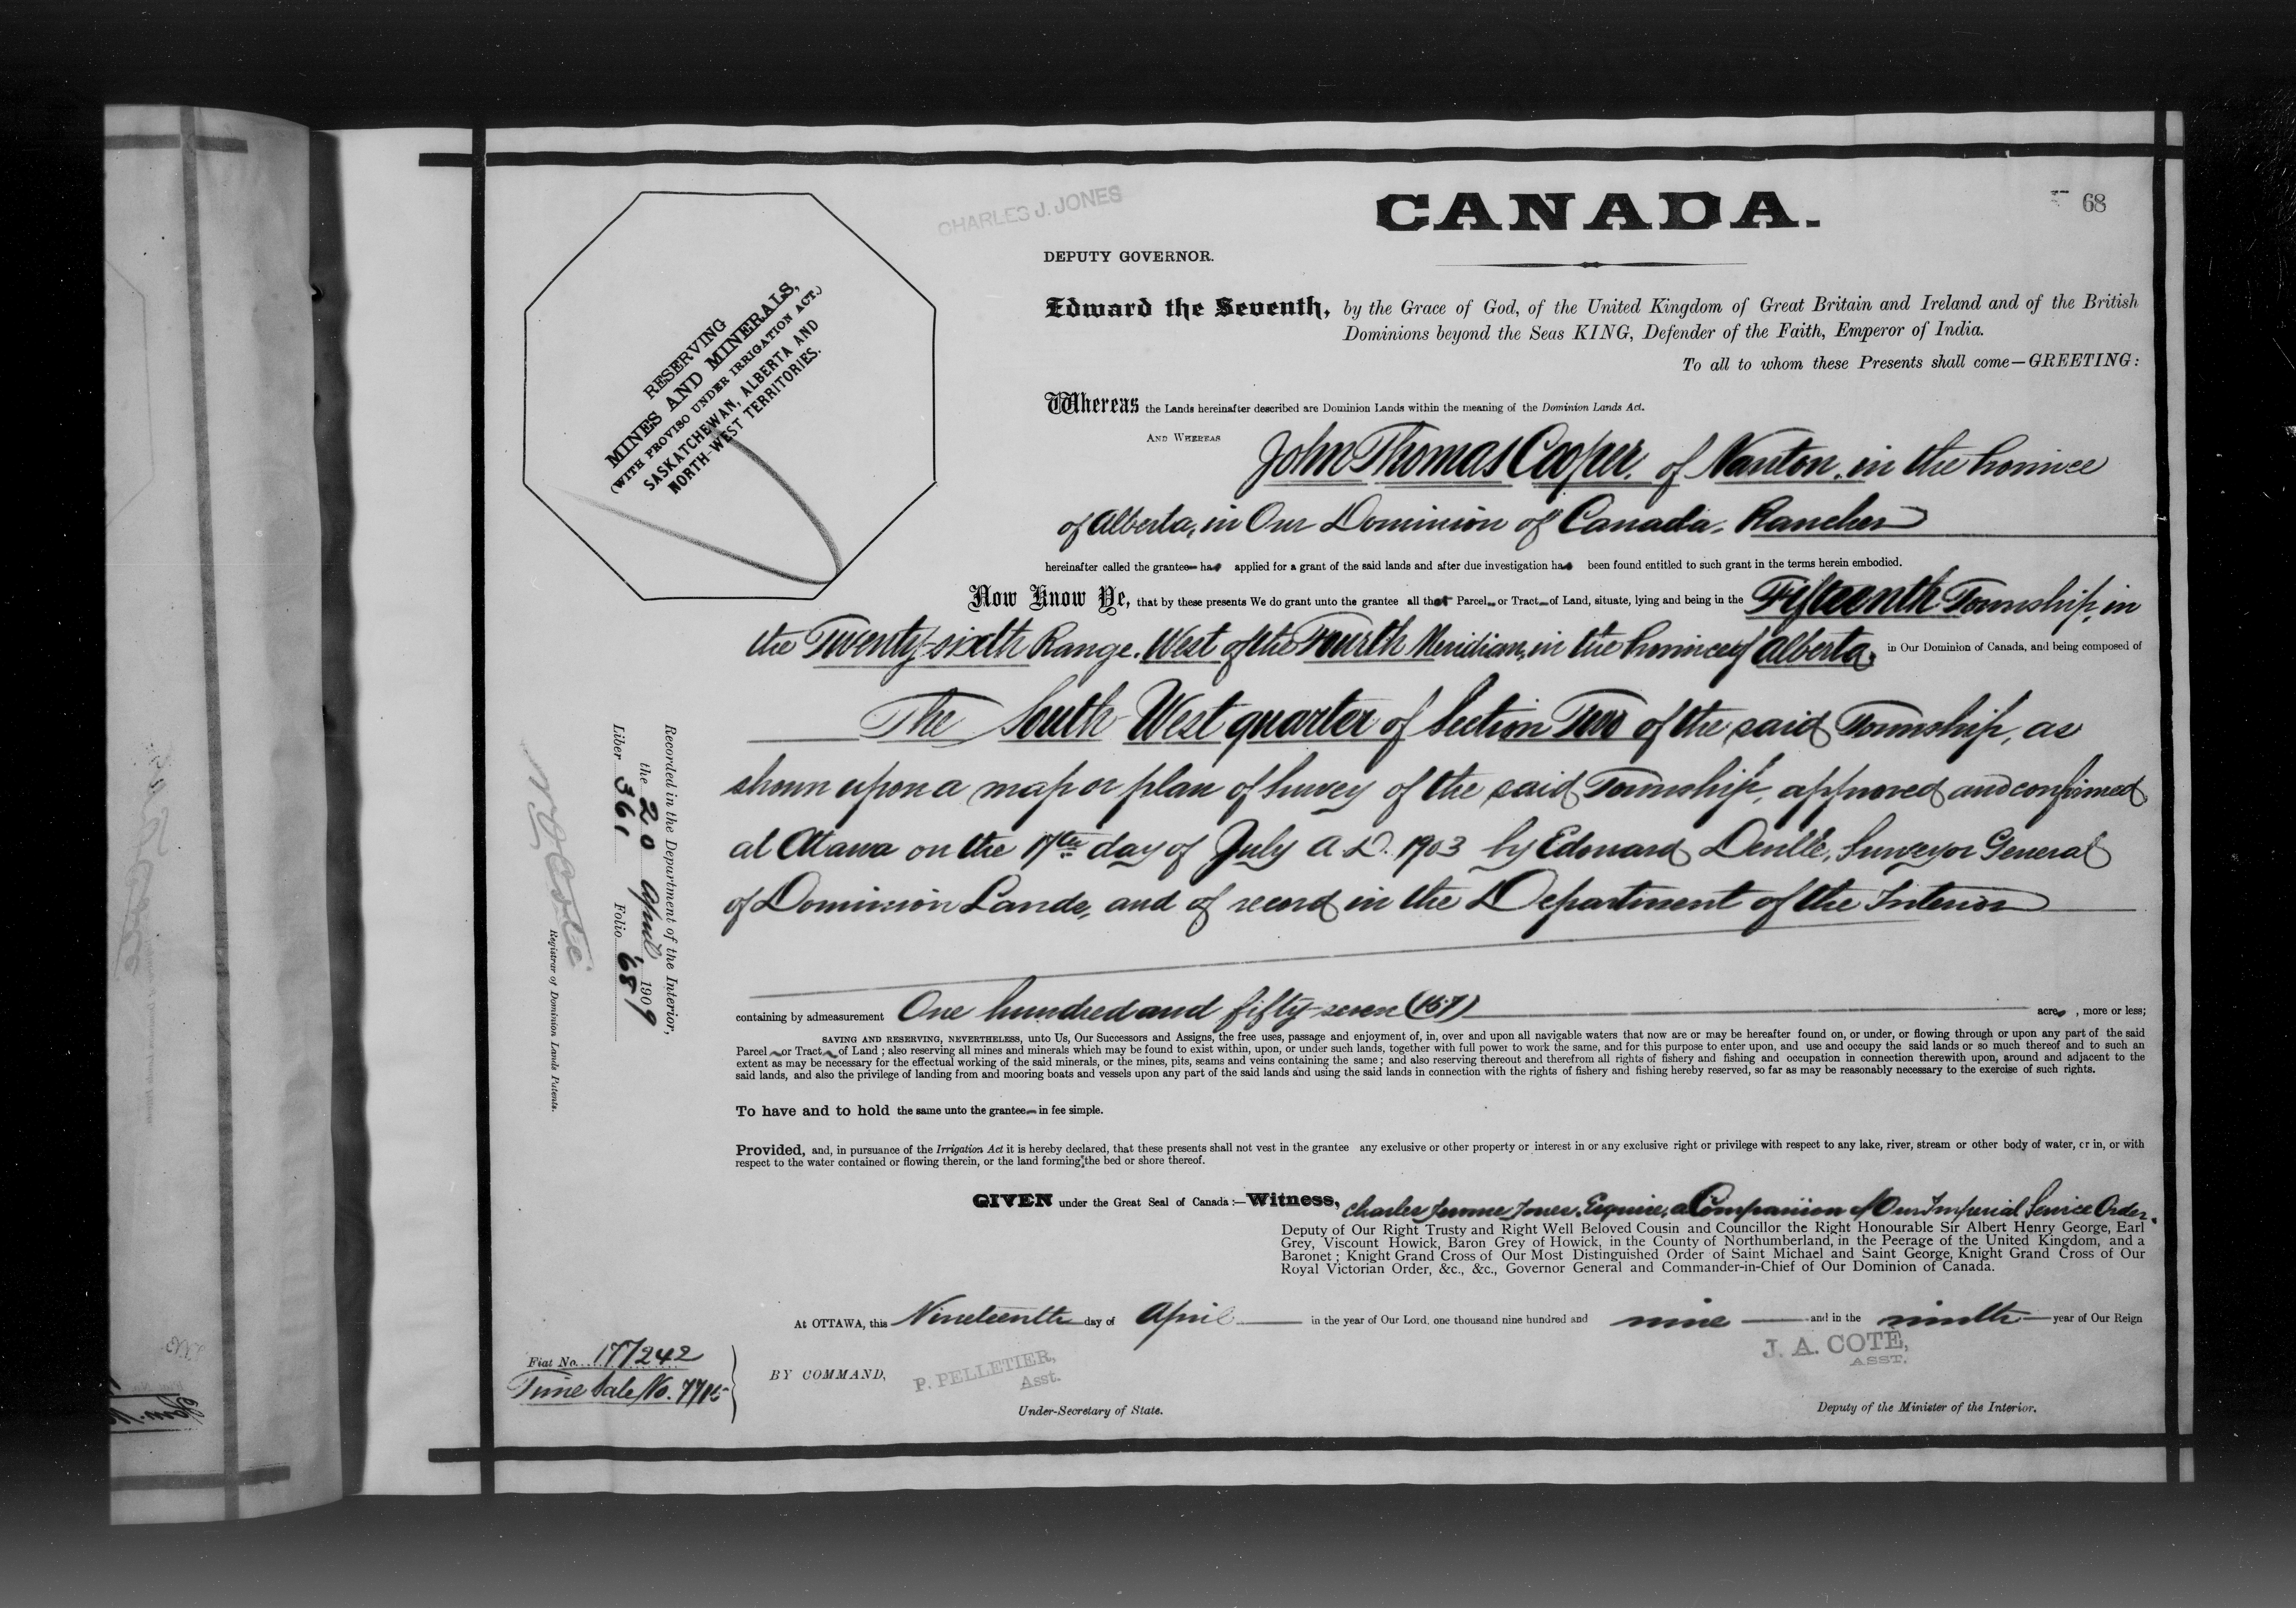 CHARLES J. JONES
CANADA.
68
DEPUTY GOVERNOR.
RESERVING
MINES AND MINERALS,
(WITH PROVISO UNDER IRRIGATION ACT.)
SASKATCHEWAN, ALBERTA AND
NORTH-WEST TERRITORIES.
Edward the Seventh, by the Grace of God, of the United Kingdom of Great Britain and Ireland and of the British
Dominions beyond the Seas KING, Defender of the Faith, Emperor of India.
To all to whom these Presents shall come—GREETING:
Whereas the Lands hereinafter described are Dominion Lands within the meaning of the Dominion Lands Act.
AND WHEREAS John Thomas Cooper, of Nanton, in the Province
of Alberta, in Our Dominion of Canada, Rancher
hereinafter called the grantee has applied for a grant of the said lands and after due investigation has been found entitled to such grant in the terms herein embodied.
Now Know Ye, that by these presents We do grant unto the grantee all that Parcel or Tract of Land, situate, lying and being in the Fifteenth Township, in
the Twenty-sixth Range, West of the Fourth Meridian, in the Province of Alberta, in Our Dominion of Canada, and being composed of
The South West quarter of Section Two of the said Township, as
shown upon a map or plan of Survey of the said Township, approved and confirmed
at Ottawa on the 17th day of July A.D. 1903 by Edouard Deville, Surveyor General
of Dominion Lands, and of record in the Department of the Interior
containing by admeasurement One hundred and fifty-seven (157) acres, more or less;
SAVING AND RESERVING, NEVERTHELESS, unto Us, Our Successors and Assigns, the free uses, passage and enjoyment of, in, over and upon all navigable waters that now are or may be hereafter found on, or under, or flowing through or upon any part of the said
Parcel or Tract of Land; also reserving all mines and minerals which may be found to exist within, upon, or under such lands, together with full power to work the same, and for this purpose to enter upon, and use and occupy the said lands or so much thereof and to such an
extent as may be necessary for the effectual working of the said minerals, or the mines, pits, seams and veins containing the same; and also reserving thereout and therefrom all rights of fishery and fishing and occupation in connection therewith upon, around and adjacent to the
said lands, and also the privilege of landing from and mooring boats and vessels upon any part of the said lands and using the said lands in connection with the rights of fishery and fishing hereby reserved, so far as may be reasonably necessary to the exercise of such rights.
To have and to hold the same unto the grantee in fee simple.
Provided, and, in pursuance of the Irrigation Act it is hereby declared, that these presents shall not vest in the grantee any exclusive or other property or interest in or any exclusive right or privilege with respect to any lake, river, stream or other body of water, or in, or with
respect to the water contained or flowing therein, or the land forming the bed or shore thereof.
GIVEN under the Great Seal of Canada:—Witness, Charles Jerome Jones, Esquire, a Companion of Our Imperial Service Order,
Deputy of Our Right Trusty and Right Well Beloved Cousin and Councillor the Right Honourable Sir Albert Henry George, Earl
Grey, Viscount Howick, Baron Grey of Howick, in the County of Northumberland, in the Peerage of the United Kingdom, and a
Baronet; Knight Grand Cross of Our Most Distinguished Order of Saint Michael and Saint George, Knight Grand Cross of Our
Royal Victorian Order, &c., &c., Governor General and Commander-in-Chief of Our Dominion of Canada.
At OTTAWA, this Nineteenth day of April in the year of Our Lord, one thousand nine hundred and nine and in the ninth year of Our Reign
BY COMMAND,
P. PELLETIER,
Asst.
Under-Secretary of State.
J. A. COTE,
ASST.
Deputy of the Minister of the Interior.
Fiat No. 177242
Time Sale No. 7715
Recorded in the Department of the Interior,
the 20 April 1909
Liber 361 Folio 68
N O Coté
Registrar of Dominion Lands Patents.